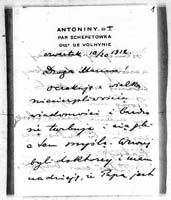 1
ANTONINY.
PAR SCHEPETOWKA
GUBT DE VOLHYNIE
czwartek 10/10 1912.
Droga Mamo
Oczekuję z wielką
niecierpliwością
wiadomości i bardzo
się turbuję i ciągle
o tem myślę. Wczoraj
był doktorem i mam
nadzieję, iż Papa jest